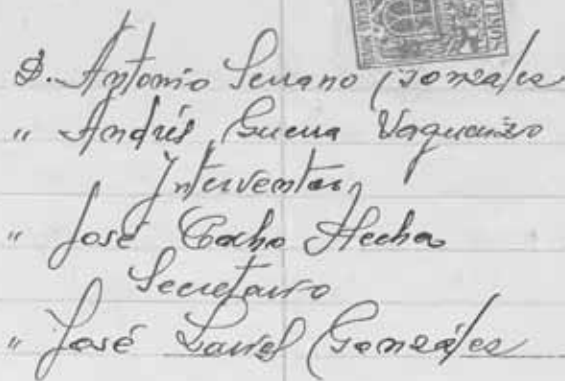 D. Antonio Serrano Gonzales
" Andrés Guerra Vaquerizo
Interventor,
" José Cocho Hecha
Secretario
" José Lauriel Gonzáles